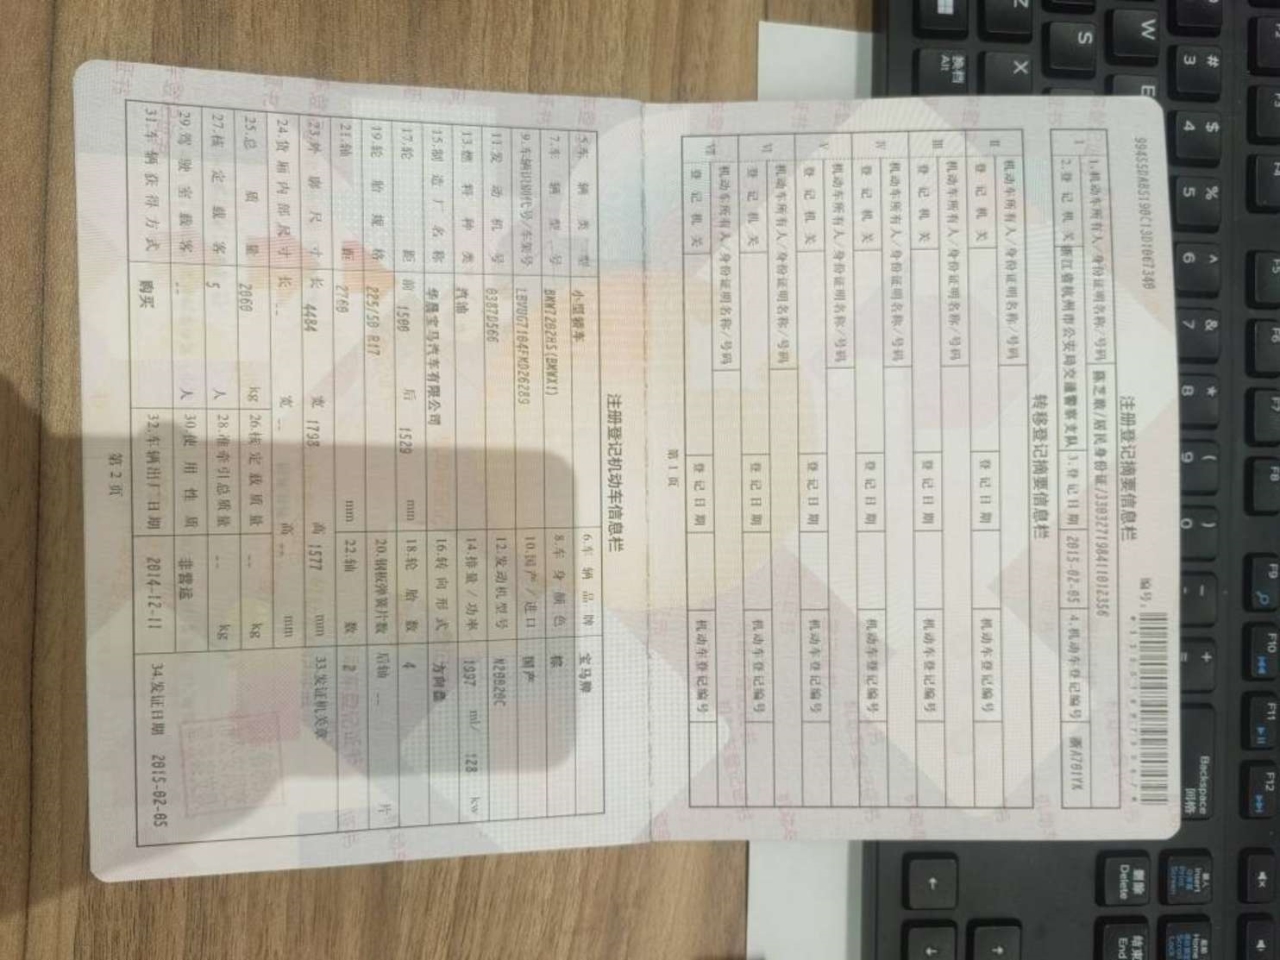 99455DAB519BC13D1067340
编号:
注册登记摘要信息栏
I 1.机动车所有人/身份证明名称/号码 陈芝敢/居民身份证/330327198411012356
2.登记机关 浙江省杭州市公安局交通警察支队 3.登记日期 2015-02-05 4.机动车登记编号 浙A701YX
转移登记摘要信息栏
II 机动车所有人/身份证明名称/号码
登记机关 登记日期 机动车登记编号
III 机动车所有人/身份证明名称/号码
登记机关 登记日期 机动车登记编号
IV 机动车所有人/身份证明名称/号码
登记机关 登记日期 机动车登记编号
V 机动车所有人/身份证明名称/号码
登记机关 登记日期 机动车登记编号
VI 机动车所有人/身份证明名称/号码
登记机关 登记日期 机动车登记编号
VII 机动车所有人/身份证明名称/号码
登记机关 登记日期 机动车登记编号
第 1 页
注册登记机动车信息栏
5.车辆类型 小型轿车 6.车辆品牌 宝马牌
7.车辆型号 BMW7202HS(BMWX1) 8.车身颜色 棕
9.车辆识别代号/车架号 LBVUG7104FMD26289 10.国产/进口 国产
11.发动机号 0387D566 12.发动机型号 N20B20C
13.燃料种类 汽油 14.排量/功率 1997 ml/ 128 kw
15.制造厂名称 华晨宝马汽车有限公司 16.转向形式 方向盘
17.轮距 前 1500 后 1529 mm 18.轮胎数 4
19.轮胎规格 225/50 R17 20.钢板弹簧片数 后轴 -- 片
21.轴距 2760 mm 22.轴数 2
23.外廓尺寸 长 4484 宽 1798 高 1577 mm 33.发证机关章
24.货厢内部尺寸 长 -- 宽 -- 高 -- mm
25.总质量 2060 kg 26.核定载质量 -- kg
27.核定载客 5 人 28.准牵引总质量 -- kg
29.驾驶室载客 -- 人 30.使用性质 非营运
31.车辆获得方式 购买 32.车辆出厂日期 2014-12-11 34.发证日期 2015-02-05
第 2 页
Z
X
换挡
Alt
W
S
E
#
3
$
4
%
5
^
6
&
7
*
8
(
9
)
0
-
+
=
Backspace
回格
F4
F5
F6
F7
F8
F9
F10
F11
F12
删除
Delete
结束
End
插入
Insert
Print
Screen
Home
Scroll
Lock